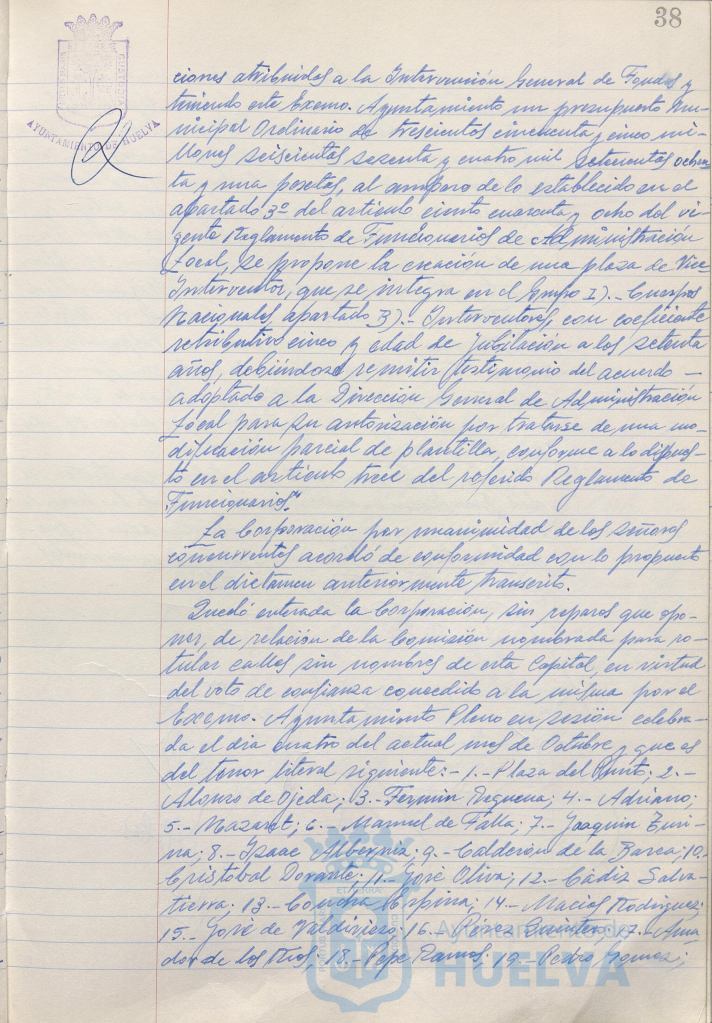 38
AYUNTAMIENTO DE HUELVA
ciones atribuidas a la Intervención General de Fondos y
teniendo este Excmo. Ayuntamiento un presupuesto Mu-
nicipal Ordinario de trescientos cincuenta y cinco mi-
llones seiscientas sesenta y cuatro mil setecientas ochen-
ta y una pesetas, al amparo de lo establecido en el
apartado 3º del artículo ciento cuarenta y ocho del vi-
gente Reglamento de Funcionarios de Administración
Local, se propone la creación de una plaza de Vice
Interventor, que se integra en el Grupo I).- Cuerpos
Nacionales apartado B).- Interventores, con coeficiente
retributivo cinco y edad de jubilación a los setenta
años, debiéndose remitir testimonio del acuerdo -
adoptado a la Dirección General de Administración
Local para su autorización por tratarse de una mo-
dificación parcial de plantilla, conforme a lo dispues-
to en el artículo trece del referido Reglamento de
Funcionarios."
La Corporación por unanimidad de los señores
concurrentes acordó de conformidad con lo propuesto
en el dictamen anteriormente transcrito.
Quedó enterada la Corporación, sin reparos que opo-
ner, de relación de la Comisión nombrada para ro-
tular calles sin nombres de esta Capital, en virtud
del voto de confianza concedido a la misma por el
Excmo. Ayuntamiento Pleno en sesión celebra-
da el dia cuatro del actual mes de Octubre y que es
del tenor literal siguiente:- 1.- Plaza del Punto; 2.-
Alonso de Ojeda; 3.- Fermin Requena; 4.- Adriano;
5.- Nazaret; 6.- Manuel de Falla; 7.- Joaquin Turi-
na; 8.- Isaac Alberniz; 9.- Calderón de la Barca; 10.-
Cristobal Dorante; 11.- José Oliva; 12.- Cádiz Salva-
tierra; 13.- Concha Espina; 14.- Macias Rodriguez;
15.- José de Valdivieso; 16.- Pérez Quintero; 17.- Ama-
dor de los Rios; 18.- Pepe Ramos; 19.- Pedro Gomez;
Ayuntamiento de
HUELVA